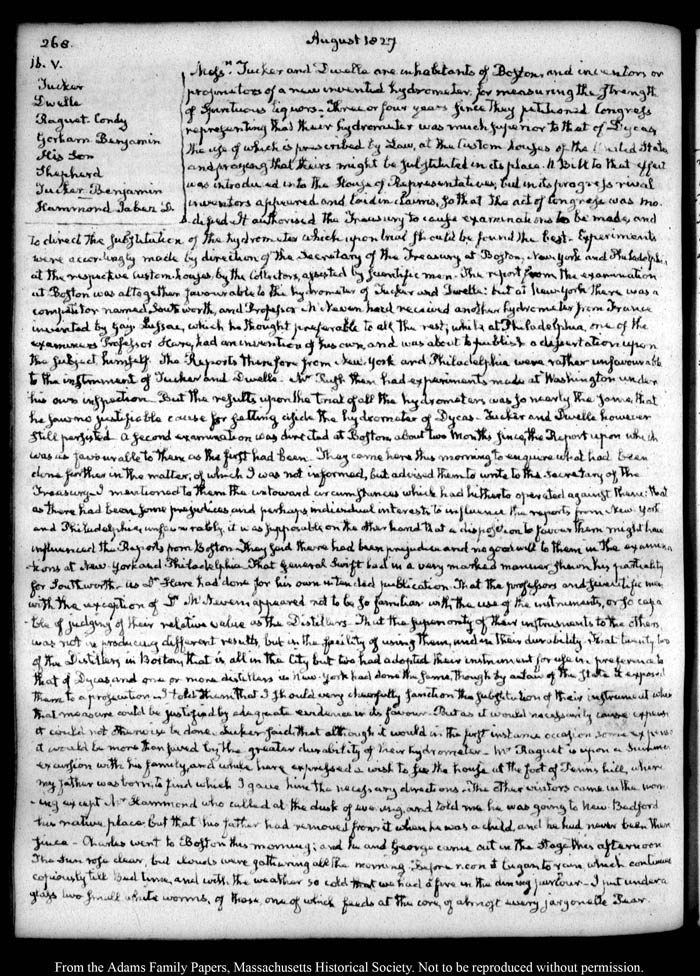 268.
August 1827
16. V.
Tucker
Dwelle
Raguet. Condy
Gorham Benjamin
His Son
Shepherd
Tucker Benjamin
Hammond Jabez D.
Messrs. Tucker and Dwelle are inhabitants of Boston, and inventors or
proprietors of a new invented hydrometer, for measuring the strength
of Spirituous liquors. Three or four years since they petitioned Congress
representing that their hydrometer was much superior to that of Dycas,
the use of which is prescribed by Law, at the Custom houses of the United States
and praying that theirs might be substituted in its place. A Bill to that effect
was introduced into the House of Representatives, but in its progress rival
inventors appeared and laid in claims, so that the act of Congress was mo-
dified. It authorised the Treasury to cause examinations to be made, and
to direct the substitution of the hydrometer which upon trial should be found the best. Experiments
were accordingly made by direction of the Secretary of the Treasury at Boston, New York and Philadelphia,
at the respective Custom-houses, by the Collectors, assisted by scientific men. The report from the examination
at Boston was altogether favourable to the hydrometer of Tucker and Dwelle: but at New York there was a
competitor named Southworth, and Professor McNeven had received another hydrometer from France
invented by Gay Lussac, which he thought preferable to all the rest; while at Philadelphia, one of the
examiners Professor Hare, had an invention of his own, and was about to publish a dissertation upon
the subject himself. The Reports therefore from New York and Philadelphia were rather unfavourable
to the instrument of Tucker and Dwelle. Mr Rush then had experiments made at Washington under
his own inspection. But the results upon the trial of all the hydrometers was so nearly the same, that
he saw no justifiable cause for setting aside the hydrometer of Dycas. Tucker and Dwelle however
still persisted. A second examination was directed at Boston about two Months since, the Report upon which
was as favourable to them as the first had been. They came here this morning to enquire what had been
done further in the matter, of which I was not informed, but advised them to write to the Secretary of the
Treasury. I mentioned to them the untoward circumstances which had hitherto operated against them: that
as there had been some prejudices and perhaps individual interests to influence the reports from New York
and Philadelphia unfavourably, it was supposable on the other hand that a disposition to favour them might have
influenced the Reports from Boston. They said there had been prejudice and no good will to them in the examina-
tions at New York and Philadelphia. That General Swift had in a very marked manner shewn his partiality
for Southworth, as Dr Hare had done for his own intended publication. That the professors and scientific men
with the exception of Dr McNeven appeared not to be so familiar with the use of the instruments, or so capa-
ble of judging of their relative value as the Distillers. That the superiority of their instruments to the others,
was not in producing different results, but in the facility of using them, and in their durability. That twenty two
of the Distillers in Boston, that is all in the City but two had adopted their instrument for use in preference to
that of Dycas, and one or more distillers in New York had done the same, though by a law of the State it exposed
them to a prosecution. I told them that I should very cheerfully sanction the substitution of their instrument when
that measure could be justified by adequate evidence in its favour. But as it would necessarily cause expense
it could not otherwise be done. Tucker said that although it would in the first instance occasion some expense
it would be more than saved by the greater durability of their hydrometer. Mr Raguet is upon a Summer
excursion with his family, and while here expressed a wish to see the house at the foot of Penns hill, where
my father was born, to find which I gave him the necessary directions. The other visitors came in the morn-
ing except Mr Hammond who called at the dusk of evening, and told me he was going to New Bedford
his native place but that his father had removed from it when he was a child, and he had never been there
since. Charles went to Boston this morning; and he and George came out in the Stage this afternoon
The Sun rose clear, but clouds were gathering all the morning. Before noon it began to rain which continued
copiously till Bed time, and with the weather so cold that we had a fire in the dining parlour. I put under a
glass two small white worms, of those, one of which feeds at the core, of almost every jargonelle Pear.
From the Adams Family Papers, Massachusetts Historical Society. Not to be reproduced without permission.